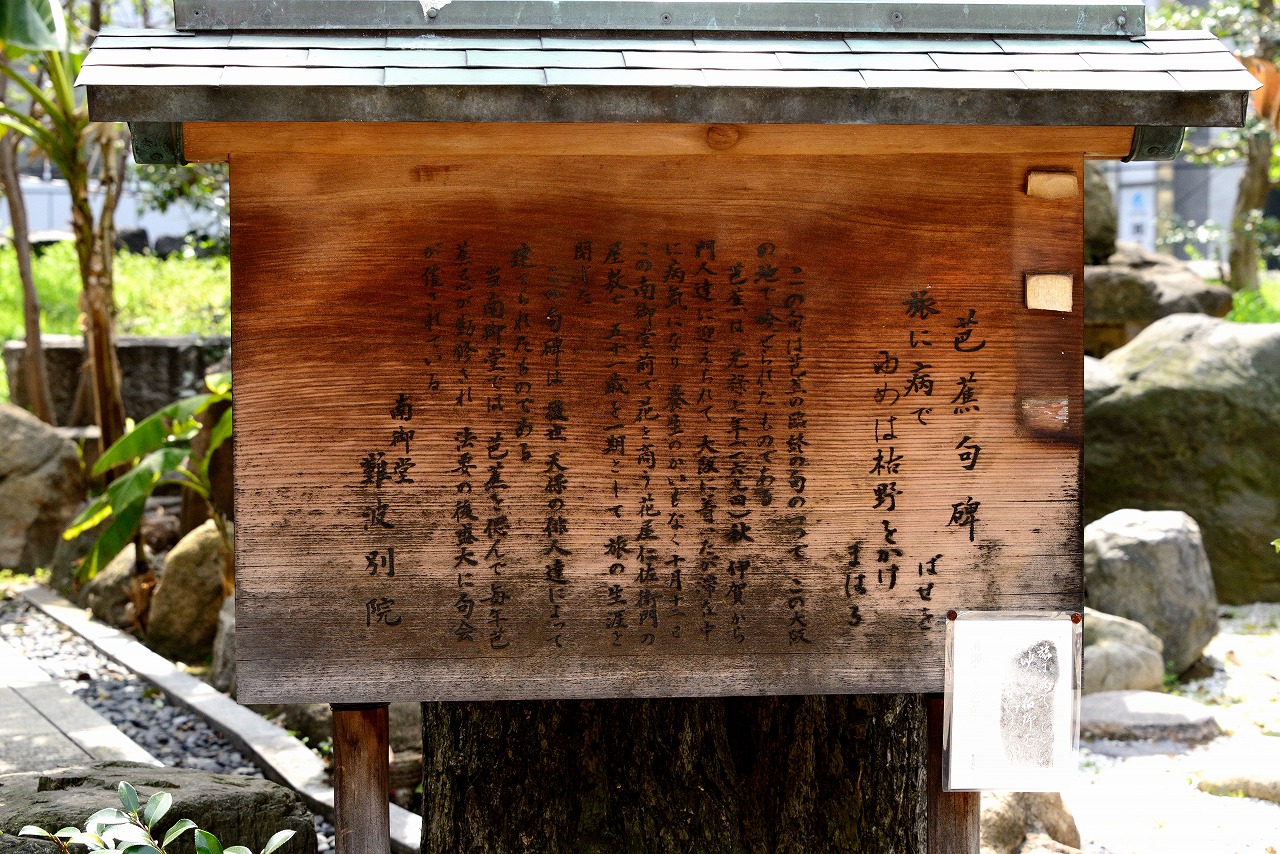 芭蕉句碑
ばせを
旅に病で
ゆめは枯野をかけ
まはる
この句は芭蕉の臨終の句の一つで この大阪
の地で吟ぜられたものである
芭蕉は 元禄七年(一六九四)秋 伊賀から
門人達に迎えられて 大阪に着いたが 滞在中
に病気になり 養生のかいもなく十月十二日
この南御堂前で花を商う花屋仁佐衛門の
屋敷で 五十一歳を一期として 旅の生涯を
閉じた
この句碑は 後世 天保の俳人達によって
建てられたものである
当南御堂では 芭蕉を偲んで 毎年芭
蕉忌が勤修され 法要の後盛大に句会
が催されている
南御堂
難波別院